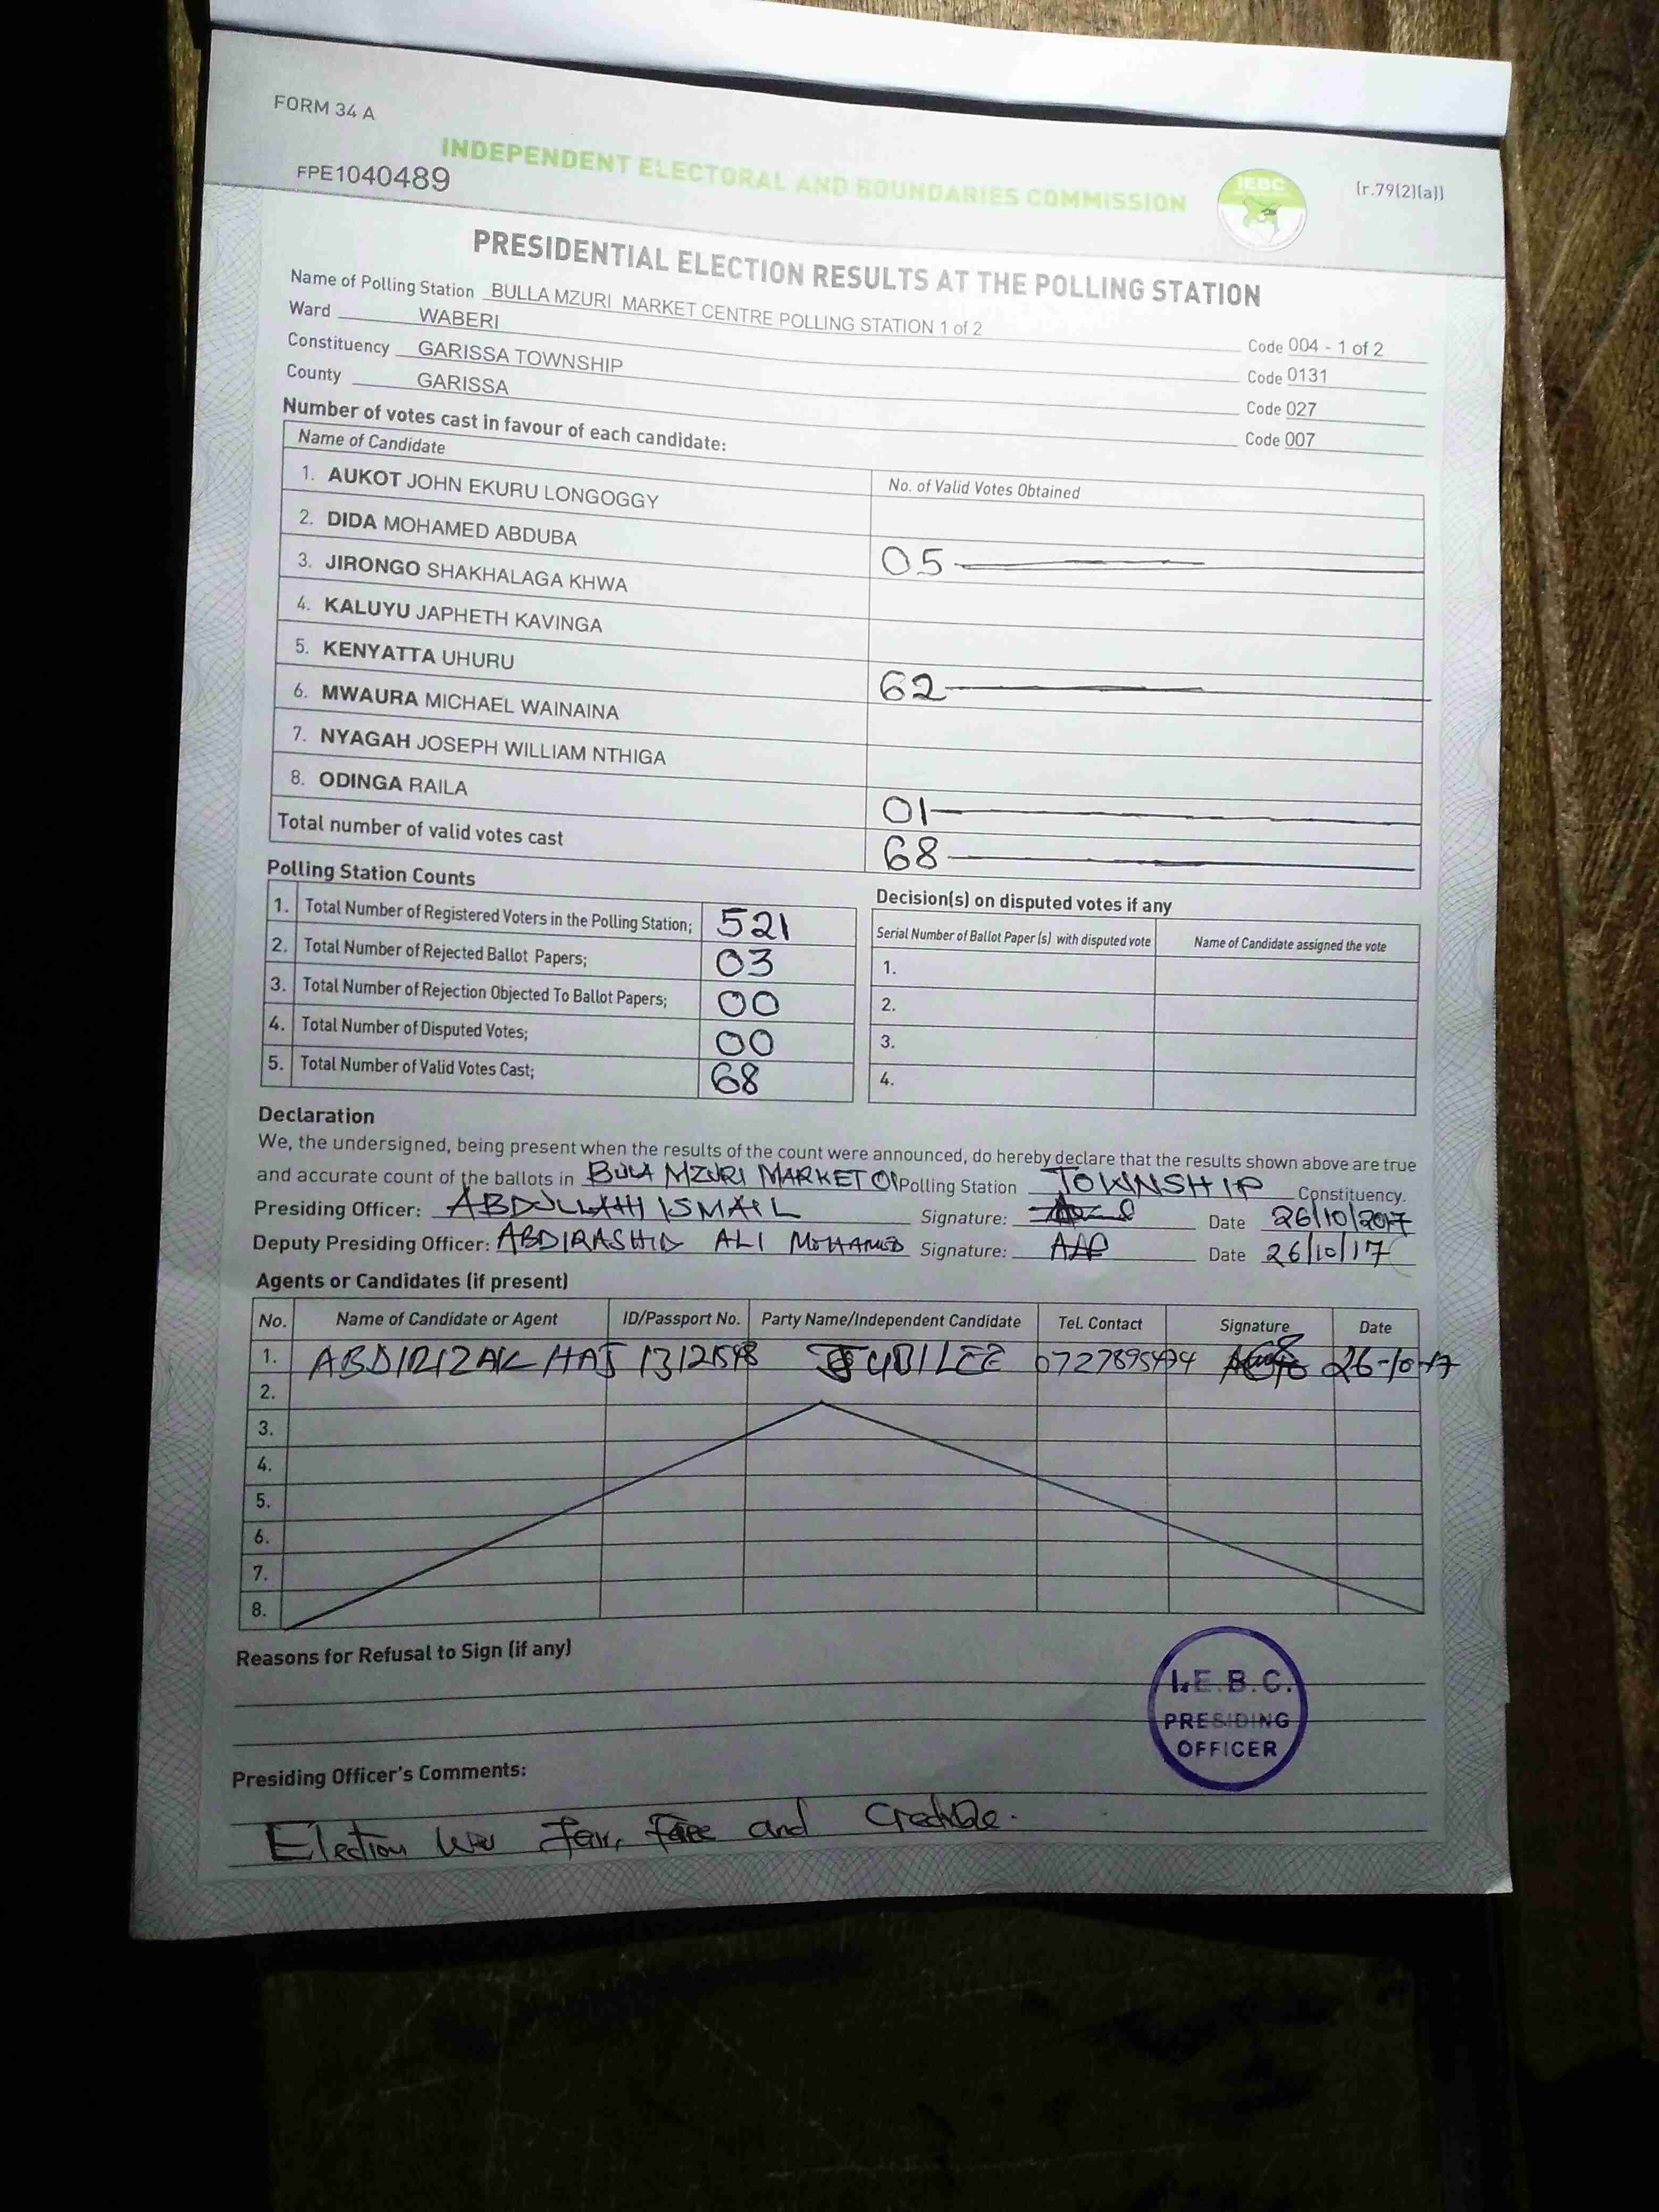 FORM 34 A
INDEPENDENT ELECTORAL AND BOUNDARIES COMMISSION
IEBC
[r.79(2)(a)]
FPE1040489
PRESIDENTIAL ELECTION RESULTS AT THE POLLING STATION
Name of Polling Station BULLA MZURI MARKET CENTRE POLLING STATION 1 of 2 Code 004 - 1 of 2
Ward WABERI Code 0131
Constituency GARISSA TOWNSHIP Code 027
County GARISSA Code 007
Number of votes cast in favour of each candidate:
Name of Candidate No. of Valid Votes Obtained
1. AUKOT JOHN EKURU LONGOGGY
2. DIDA MOHAMED ABDUBA 05
3. JIRONGO SHAKHALAGA KHWA
4. KALUYU JAPHETH KAVINGA
5. KENYATTA UHURU 62
6. MWAURA MICHAEL WAINAINA
7. NYAGAH JOSEPH WILLIAM NTHIGA
8. ODINGA RAILA 01
Total number of valid votes cast 68
Polling Station Counts
1. Total Number of Registered Voters in the Polling Station; 521
2. Total Number of Rejected Ballot Papers; 03
3. Total Number of Rejection Objected To Ballot Papers; 00
4. Total Number of Disputed Votes; 00
5. Total Number of Valid Votes Cast; 68
Decision(s) on disputed votes if any
Serial Number of Ballot Paper (s) with disputed vote Name of Candidate assigned the vote
1.
2.
3.
4.
Declaration
We, the undersigned, being present when the results of the count were announced, do hereby declare that the results shown above are true
and accurate count of the ballots in BULA MZURI MARKET 01 Polling Station TOWNSHIP Constituency.
Presiding Officer: ABDULLAHI ISMAIL Signature: Date 26/10/2017
Deputy Presiding Officer: ABDIRASHID ALI MOHAMED Signature: Date 26/10/17
Agents or Candidates (if present)
No. Name of Candidate or Agent ID/Passport No. Party Name/Independent Candidate Tel. Contact Signature Date
1. ABDIRIZAK HAJ JUBILEE 26-10-17
2.
3.
4.
5.
6.
7.
8.
Reasons for Refusal to Sign (if any)
I.E.B.C.
PRESIDING
OFFICER
Presiding Officer's Comments:
Election was fair, free and Credible.